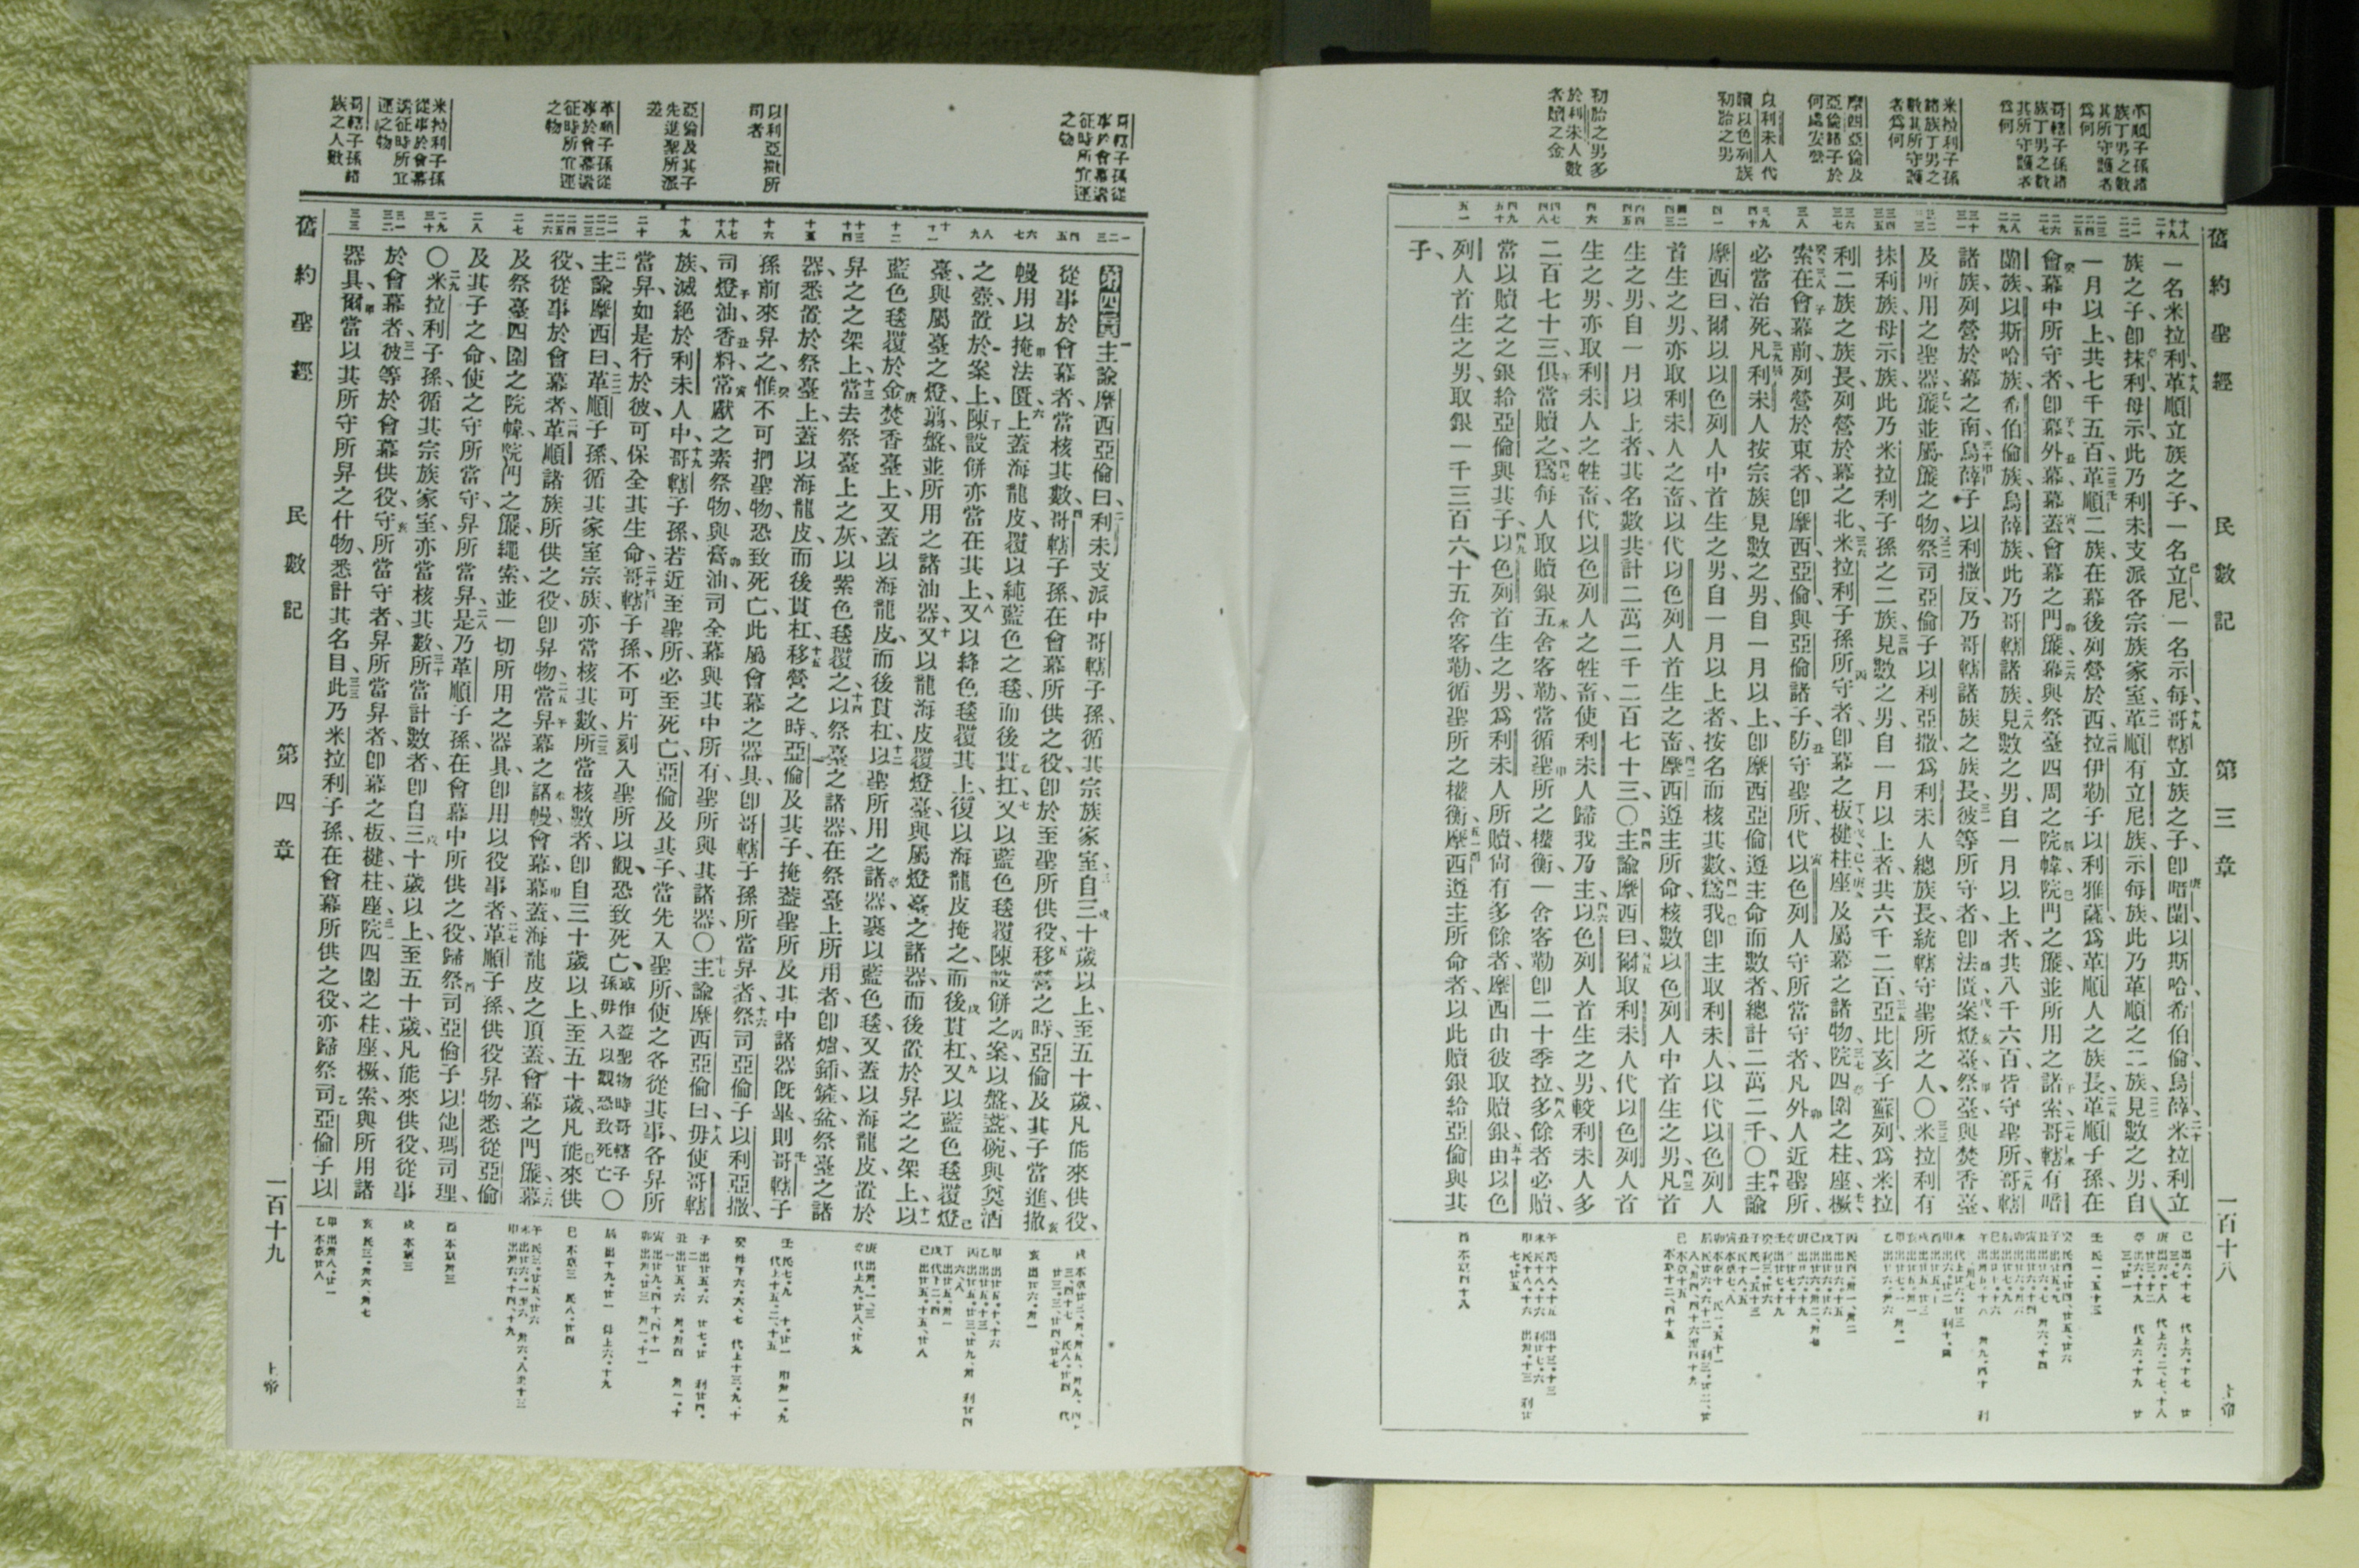 舊約聖經 民數記 第三章 一百十八 上帝
革順子孫諸
族丁男之數
其所守護者
爲何
哥轄子孫諸
族丁男之數
其所守護者
爲何
米拉利子孫
諸族丁男之
數其所守護
者爲何
摩西亞倫及
亞倫諸子於
何處安營
以利未人代
贖以色列族
初胎之男
初胎之男多
於利未人數
者贖之金
一名米拉利、革順立族之子、一名立尼、一名示每、哥轄立族之子、卽暗蘭、以斯哈、希伯倫、烏薛、米拉利立
族之子、卽抹利、母示、此乃利未支派各宗族家室、革順有立尼族、示每族、此乃革順之二族、見數之男、自
一月以上、共七千五百、革順二族、在幕後列營於西、拉伊勒子以利雅薩、爲革順人之族長、革順子孫在
會幕中所守者、卽幕、外幕、幕蓋、會幕之門簾、幕與祭臺四周之院幃、院門之簾、並所用之諸索、哥轄有暗
蘭族、以斯哈族、希伯倫族、烏薛族、此乃哥轄諸族、見數之男、自一月以上者、共八千六百、皆守聖所、哥轄
諸族、列營於幕之南、烏薛子以利撒反、乃哥轄諸族之族長、彼等所守者、卽法匱、案、燈臺、祭臺、與焚香臺、
及所用之聖器、簾、並屬簾之物、祭司亞倫子以利亞撒、爲利未人總族長、統轄守聖所之人、○米拉利有
抹利族、母示族、此乃米拉利子孫之二族、見數之男、自一月以上者、共六千二百、亞比亥子蘇列、爲米拉
利二族之族長、列營於幕之北、米拉利子孫所守者、卽幕之板、楗、柱、座、及屬幕之諸物、院四圍之柱、座、橛、
索、在會幕前、列營於東者、卽摩西、亞倫、與亞倫諸子、防守聖所、代以色列人守所當守者、凡外人近聖所、
必當治死、凡利未人按宗族見數之男、自一月以上、卽摩西亞倫遵主命而數者、總計二萬二千、○主諭
摩西曰、爾以以色列人中首生之男、自一月以上者、按名而核其數、爲我卽主取利未人、以代以色列人
首生之男、亦取利未人之畜、以代以色列人首生之畜、摩西遵主所命、核數以色列人中首生之男、凡首
生之男、自一月以上者、其名數共計二萬二千二百七十三、○主諭摩西曰、爾取利未人代以色列人首
生之男、亦取利未人之牲畜、代以色列人之牲畜、使利未人歸我、乃主、以色列人首生之男、較利未人多
二百七十三、俱當贖之、爲每人取贖銀五舍客勒、當循聖所之權衡、一舍客勒卽二十季拉、多餘者必贖、
當以贖之之銀、給亞倫與其子、以色列首生之男、爲利未人所贖、尚有多餘者、摩西由彼取贖銀、由以色
列人首生之男、取銀一千三百六十五舍客勒、循聖所之權衡、摩西遵主所命者、以此贖銀給亞倫與其
子、
哥轄子孫從
事於會幕遷
征時所宜運
之物
以利亞撒所
司者
亞倫及其子
先進聖所派
差
革順子孫從
事於會幕遷
征時所宜運
之物
米拉利子孫
從事於會幕
遷征時所宜
運之物
哥轄子孫諸
族之人數
第四章 主諭摩西亞倫曰、利未支派中哥轄子孫、循其宗族家室、自三十歲以上、至五十歲、凡能來供役、
從事於會幕者、當核其數、哥轄子孫、在會幕所供之役、卽於至聖所供役、移營之時、亞倫及其子當進、撤
幔用以掩法匱、上蓋海龍皮、覆以純藍色之毯、而後貫扛、又以藍色毯覆陳設餅之案、以盤、盞、碗、與奠酒
之壺、置於案上、陳設餅亦當在其上、又以絳色毯覆其上、復以海龍皮掩之、而後貫杠、又以藍色毯覆燈
臺、與屬臺之燈、剪、盤、並所用之諸油器、又以龍海皮覆燈臺、與屬燈臺之諸器、而後置於舁之之架上、以
藍色毯覆於金焚香臺上、又蓋以海龍皮、而後貫杠、以聖所用之諸器、裹以藍色毯、又蓋以海龍皮、置於
舁之之架上、當去祭臺上之灰、以紫色毯覆之、以祭臺之諸器、在祭臺上所用者、卽爐、鍤、鏟、盆、祭臺之諸
器、悉置於祭臺上、蓋以海龍皮、而後貫杠、移營之時、亞倫及其子、掩蓋聖所及其中諸器旣畢、則哥轄子
孫前來舁之、惟不可捫聖物、恐致死亡、此屬會幕之器具、卽哥轄子孫所當舁者、祭司亞倫子以利亞撒、
司燈油、香料、常獻之素祭物、與膏油、司全幕與其中所有、聖所與其諸器、○主諭摩西亞倫曰、毋使哥轄
族、滅絕於利未人中、哥轄子孫、若近至聖所、必至死亡、亞倫及其子、當先入聖所、使之各從其事、各舁所
當舁、如是行於彼、可保全其生命、哥轄子孫、不可片刻入聖所以觀、恐致死亡、或作蓋聖物時哥轄子孫毋入以觀恐致死亡○
主諭摩西曰、革順子孫、循其家室宗族、亦當核其數、所當核數者、卽自三十歲以上、至五十歲、凡能來供
役、從事於會幕者、革順諸族所供之役、卽舁物、當舁幕之諸幔、會幕、幕蓋、海龍皮之頂蓋、會幕之門簾、幕
及祭臺四圍之院幃、院門之簾、繩索、並一切所用之器具、卽用以役事者、革順子孫、供役舁物、悉從亞倫
及其子之命、使之守所當守、舁所當舁、是乃革順子孫、在會幕中所供之役、歸祭司亞倫子以他瑪司理、
○米拉利子孫、循其宗族家室、亦當核其數、所當計數者、卽自三十歲以上、至五十歲、凡能來供役、從事
於會幕者、彼等於會幕供役、守所當守者、舁所當舁者、卽幕之板、楗、柱、座、院四圍之柱、座、橛、索、與所用諸
器具、爾當以其所守所舁之什物、悉計其名目、此乃米拉利子孫、在會幕所供之役、亦歸祭司亞倫子以
舊約聖經 民數記 第四章 一百十九 上帝